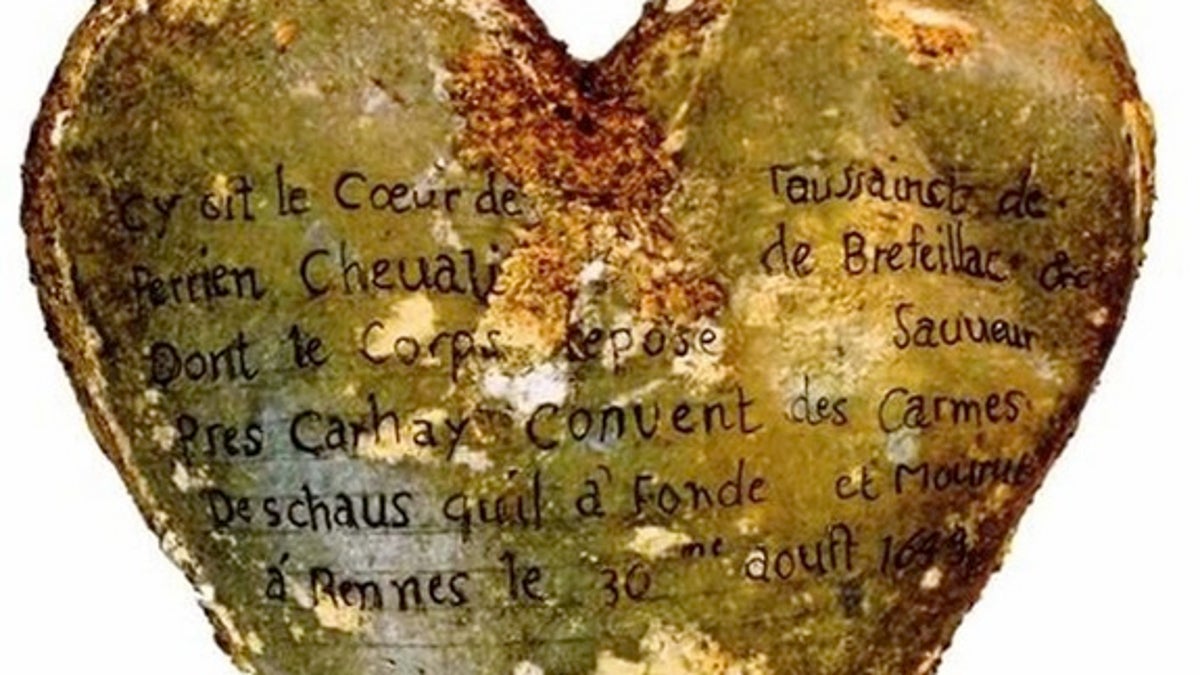 Cy Git le Cœur de Toussainct de
Perrien Cheuali de Brefeillac &c
Dont le Corps repose Sauueur
Pres Carhay Conuent des Carmes
Deschaus quil a Fondé et Mourut
á Rennes le 30me aoust 1649